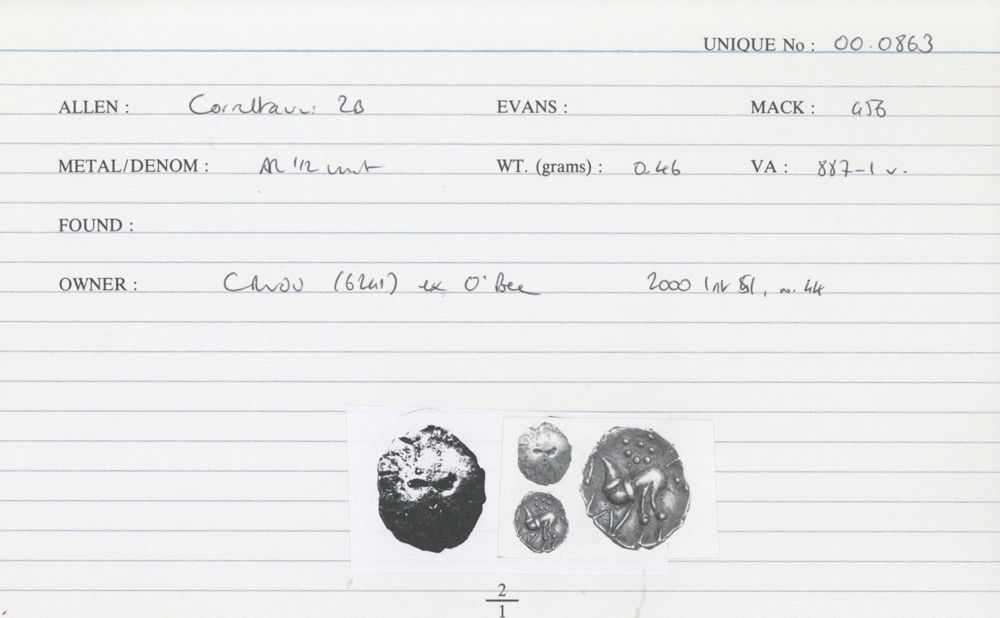 UNIQUE No : 00.0863
ALLEN : 2B EVANS : MACK : 456
METAL/DENOM : AR 1/2 unit WT. (grams) : 0.46 VA : 887-1 v.
FOUND :
OWNER : (6241) ex O'Bee 2000 no. 44
2
1